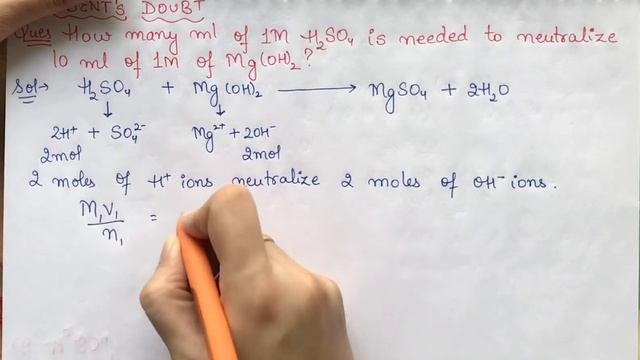 DOUBT
Ques How many ml of 1M H₂SO₄ is needed to neutralize
10 ml of 1M of Mg(OH)₂?
Sol→ H₂SO₄ + Mg(OH)₂ ⟶ MgSO₄ + 2H₂O
↓ ↓
2H⁺ + SO₄²⁻ Mg²⁺ + 2OH⁻
2mol 2mol
2 moles of H⁺ ions neutralize 2 moles of OH⁻ ions.
M₁V₁
/n₁ =